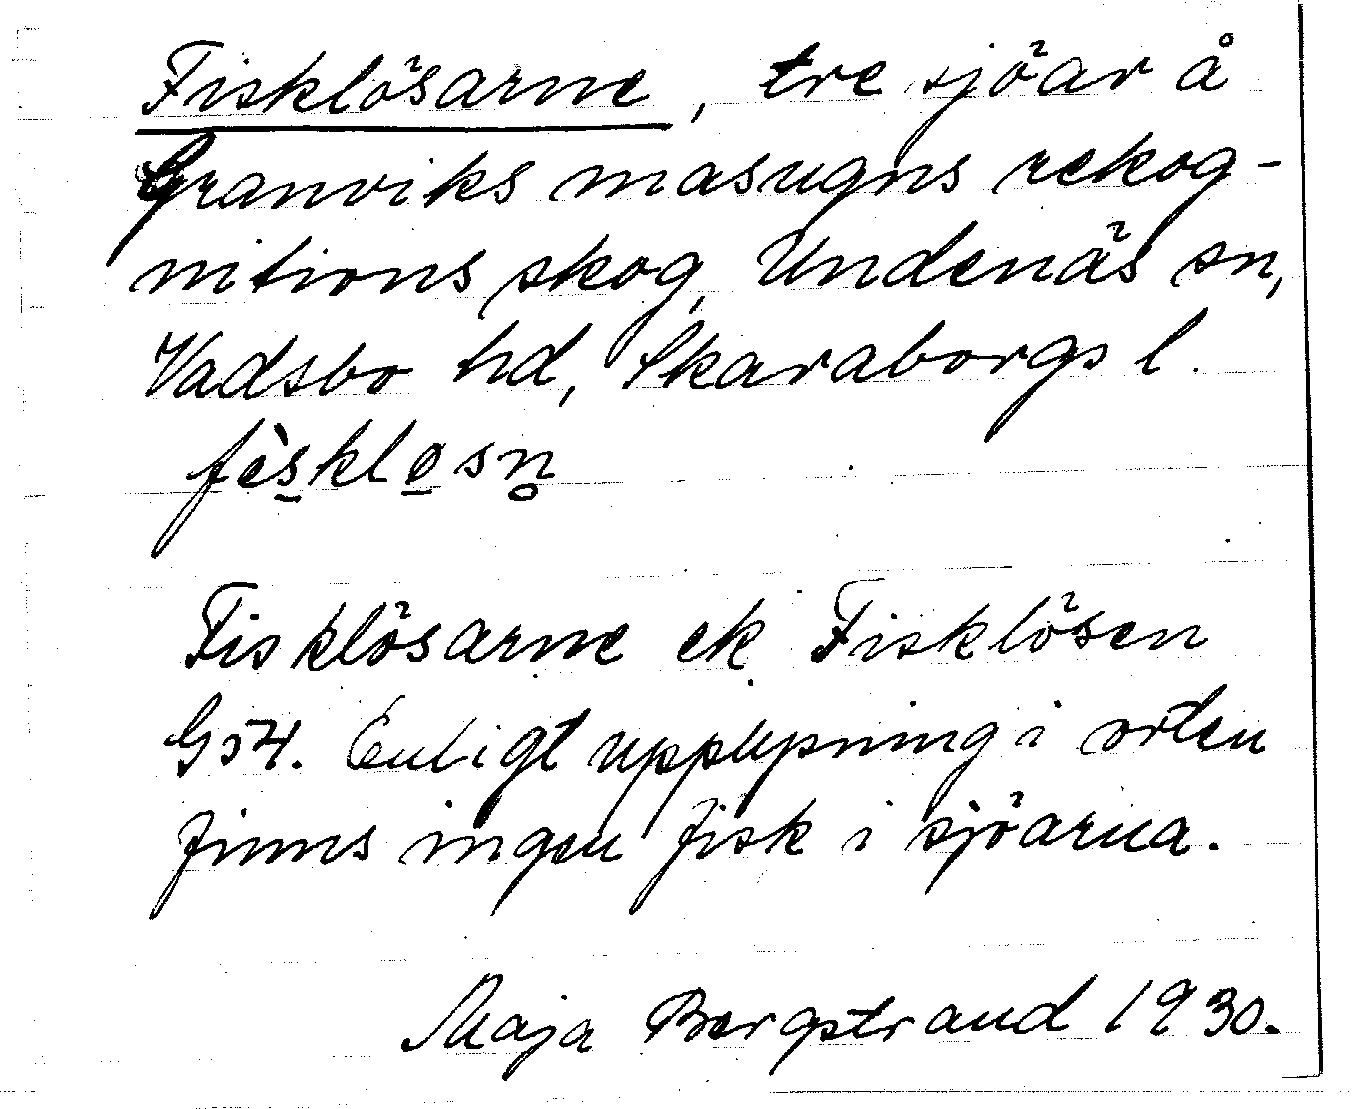 Fisklösarne, tre sjöar å
Granviks masugns rekog-
nitions skog, Undenäs sn,
Vadsbo hd, Skaraborgs l.
fès̲klø̲sn̥
Fisklösarne ek Fisklösen
G54. Enligt upplysning i orten
finns ingen fisk i sjöarna.
Maja Bergstrand 1930.